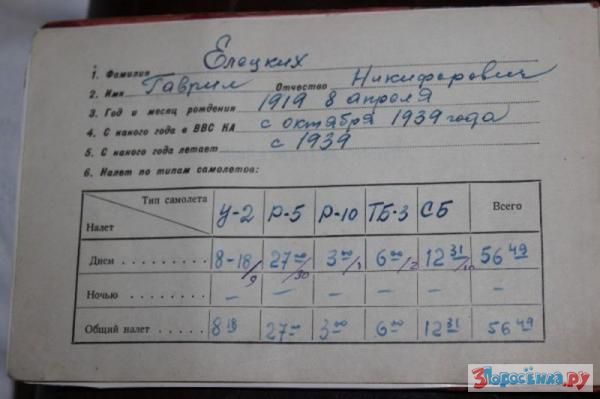 1. Фамилия Елецких
2. Имя Гаврил Отчество Никифорович
3. Год и месяц рождения 1919 8 апреля
4. С какого года в ВВС КА с октября 1939 года
5. С какого года летает с 1939
6. Налет по типам самолетов:
Тип самолета У-2 Р-5 Р-10 ТБ-3 СБ Всего
Налет
Днем 8-18/9 27 00/30 3 00/1 6 00/2 12 31/10 56 49
Ночью — — — — — —
Общий налет 8 18 27 00 3 00 6 00 12 31 56 49
3Поросёнка.ру